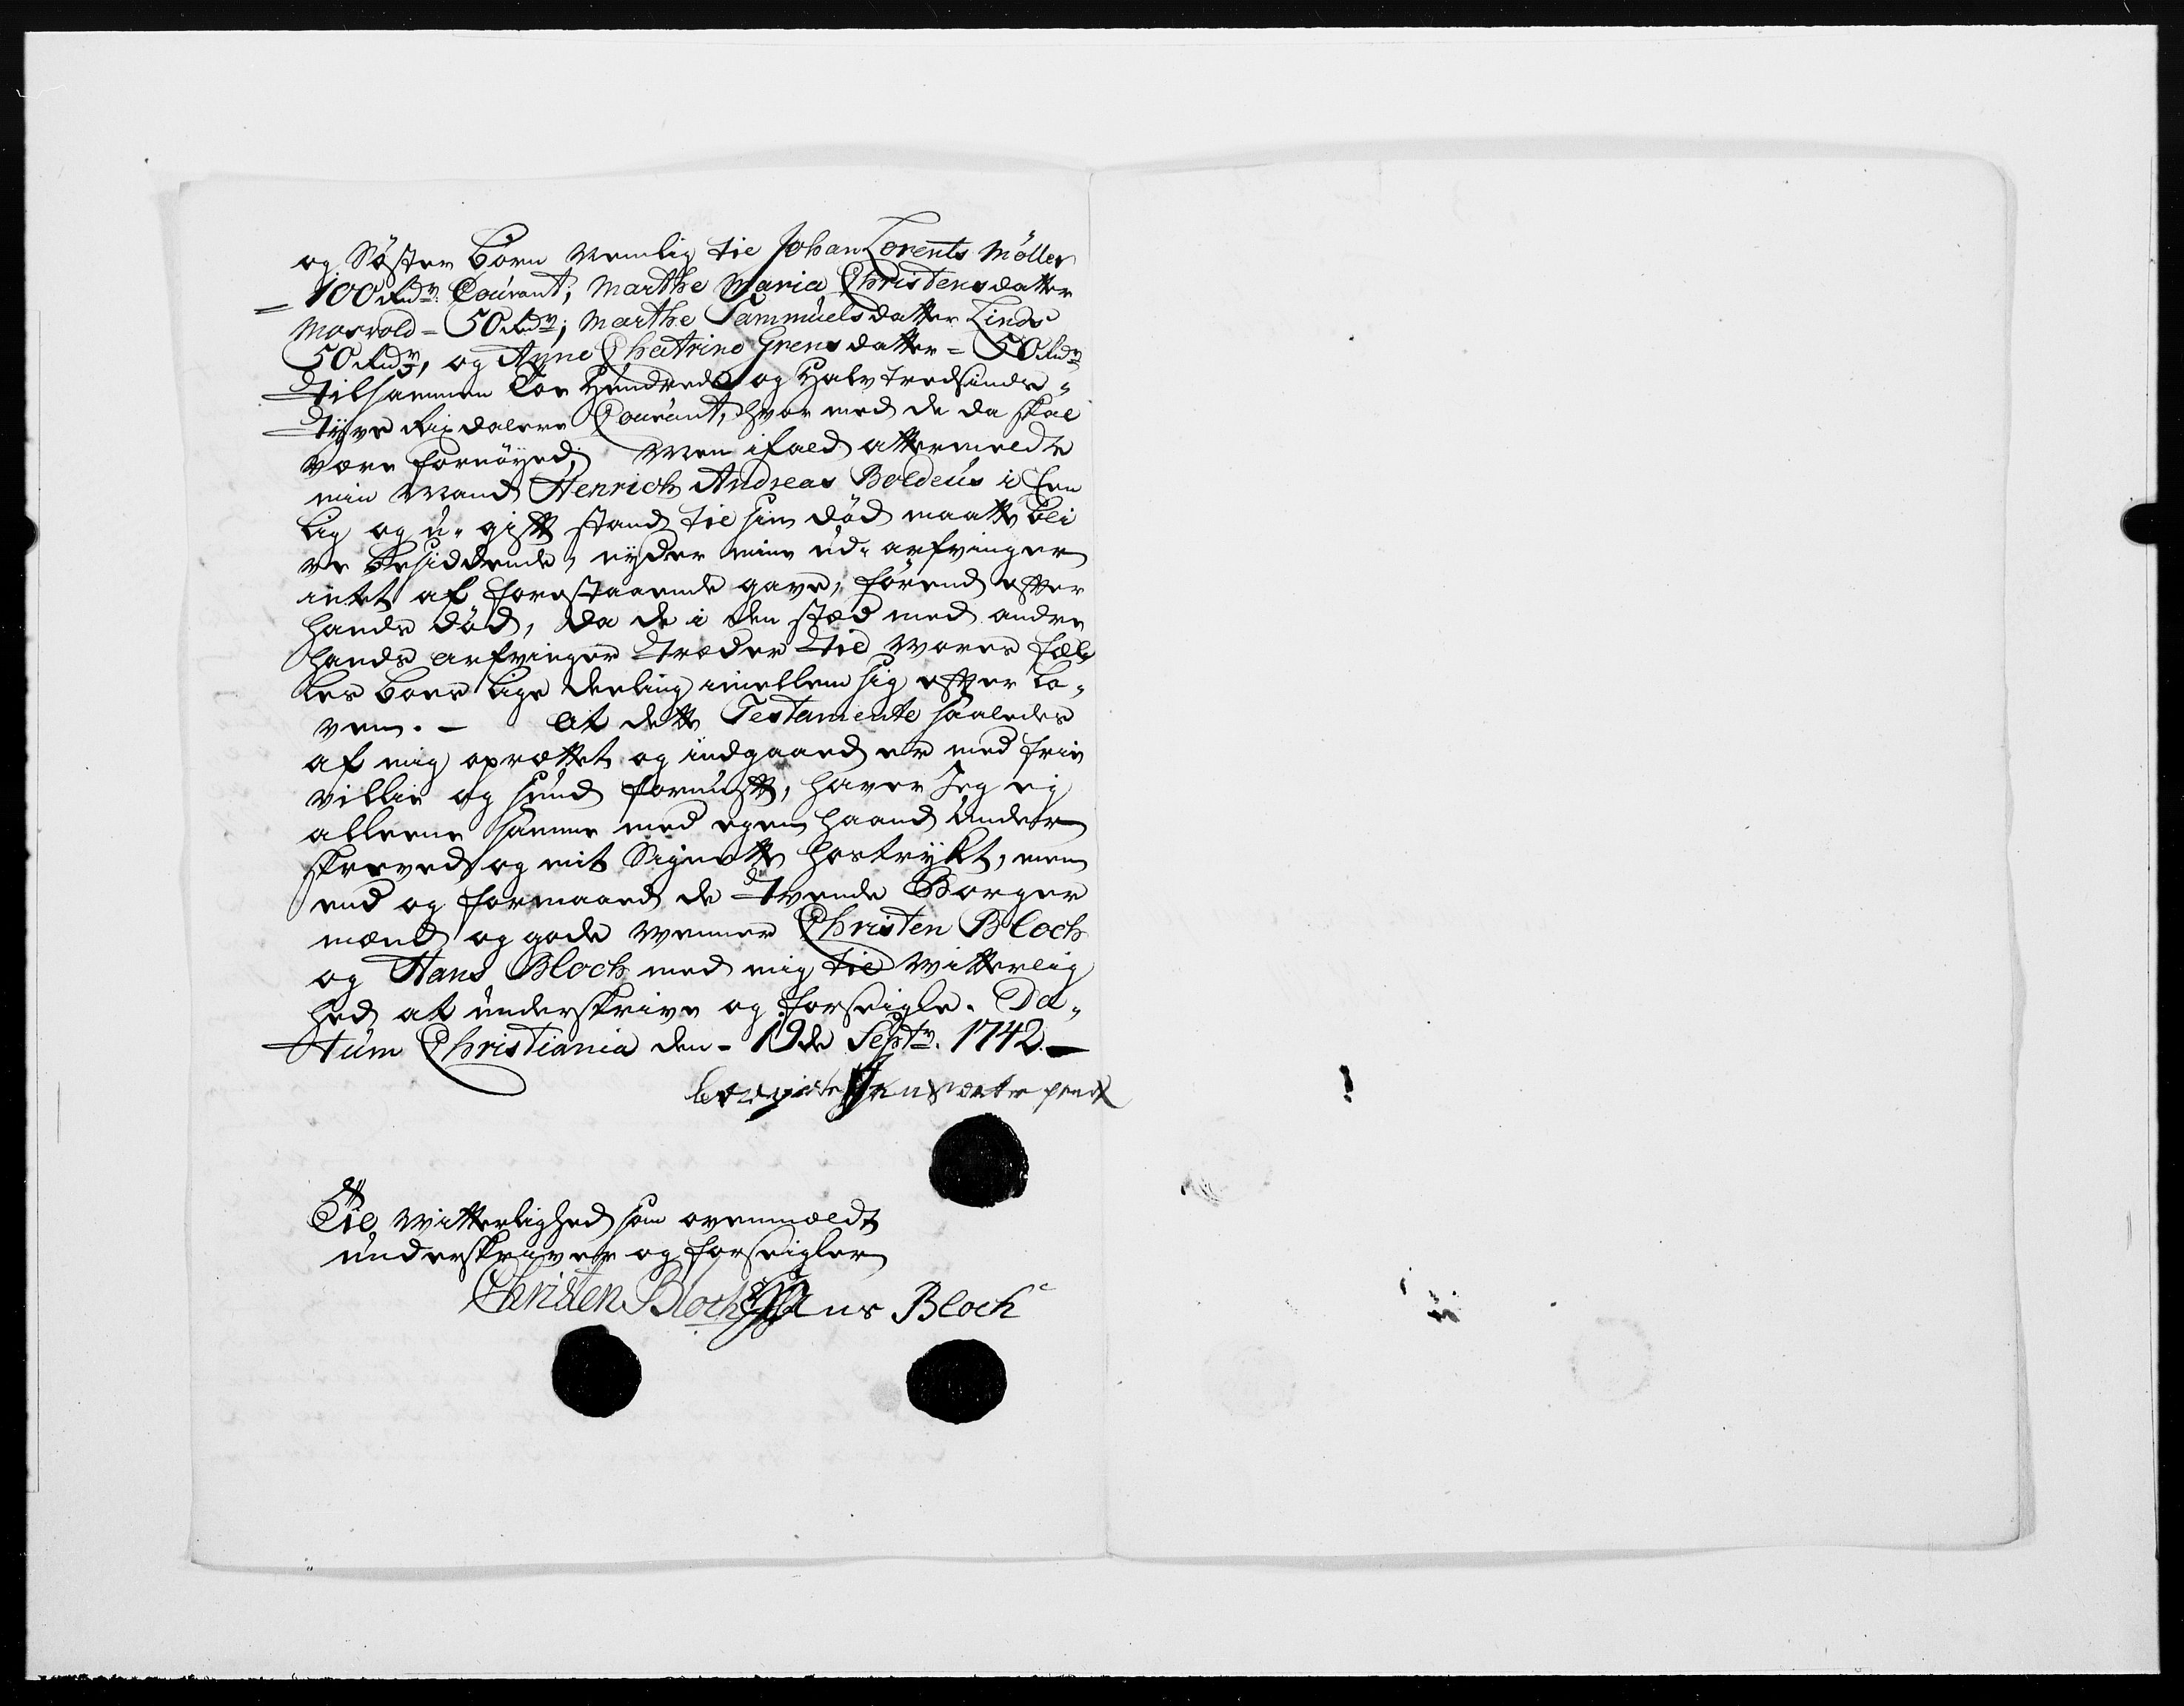 og Søster Børn Nemlig til Johan Lorents Möller
= 100 Rdr. Courant, Marthe Maria Christensdatter
Morvold = 50 Rdr; Marthe Sammuelsdatter Linds
50 Rdr, og Anne Chatrine Grensdatter = 50 Rdr
tilsammen Toe Hundrede og Halvtredsinds„
tÿve Rixdalere Courant, hvor med de da skal
være fornöyed, Men ifald attermeldte
min Mand Henrich Andreas Boldeus i Een
lig og u-gift stand til sin död maatte bli
ve besiddende, nÿder mine ud-arfvinger
intet af forestaaende gave, förend efter
hands död, da de i den sted med andre
hands arfvinger træder til vores fæl
les boes lige deeling imellem sig efter lo„
ven. — At dette Testamente saaledes
af mig oprættet og indgaaed er med frie
villie og sund fornuft, haver Jeg ej
alleene samme med egen haand under
skreved og mit Signette hostrÿkt, men
end og formaaed de tvende Borger
mænd og gode venner Christen Bloch
og Hans Bloch med mig til vitterlig
hed at underskrive og forseigle. Da„
tum Christiania den 19de Septr. 1742. —
Til Vitterlighed som ovenmældt
underskriver og forseigler
Christen Bloch Hans Bloch